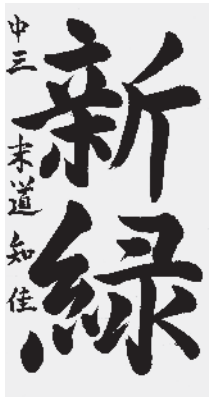 新緑
中三 末道知佳